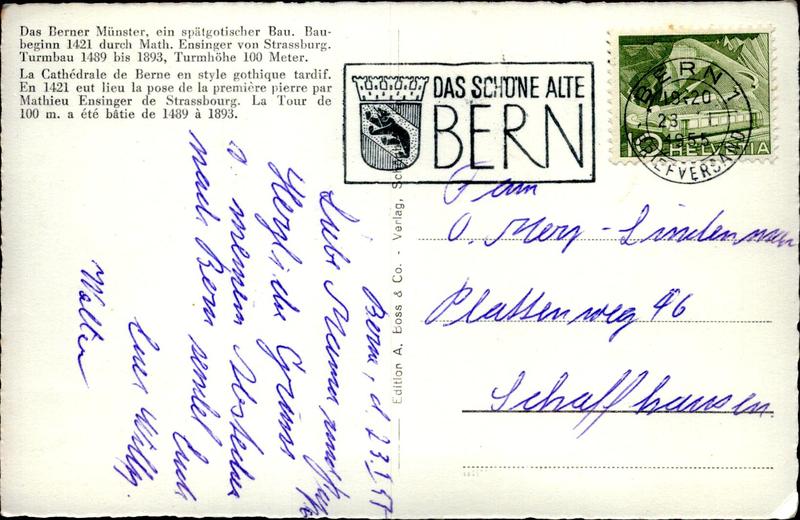 Das Berner Münster, ein spätgotischer Bau. Bau-
beginn 1421 durch Math. Ensinger von Strassburg.
Turmbau 1489 bis 1893, Turmhöhe 100 Meter.
La Cathédrale de Berne en style gothique tardif.
En 1421 eut lieu la pose de la première pierre par
Mathieu Ensinger de Strassbourg. La Tour de
100 m. a été bâtie de 1489 à 1893.
DAS SCHÖNE ALTE
BERN
BERN 1
18-20
23. I.
BRIEFVERSAND
HELVETIA
Edition A. Boss & Co. - Verlag, Sch
Fam
O. Merz-Lindenmann
Plattenweg 46
Schaffhausen
Bern, d. 23.I.
Liebe Mama
Herzliche Grüsse
v. meinem Abstecher
nach Bern sendet Euch
Euer Willy
Walter